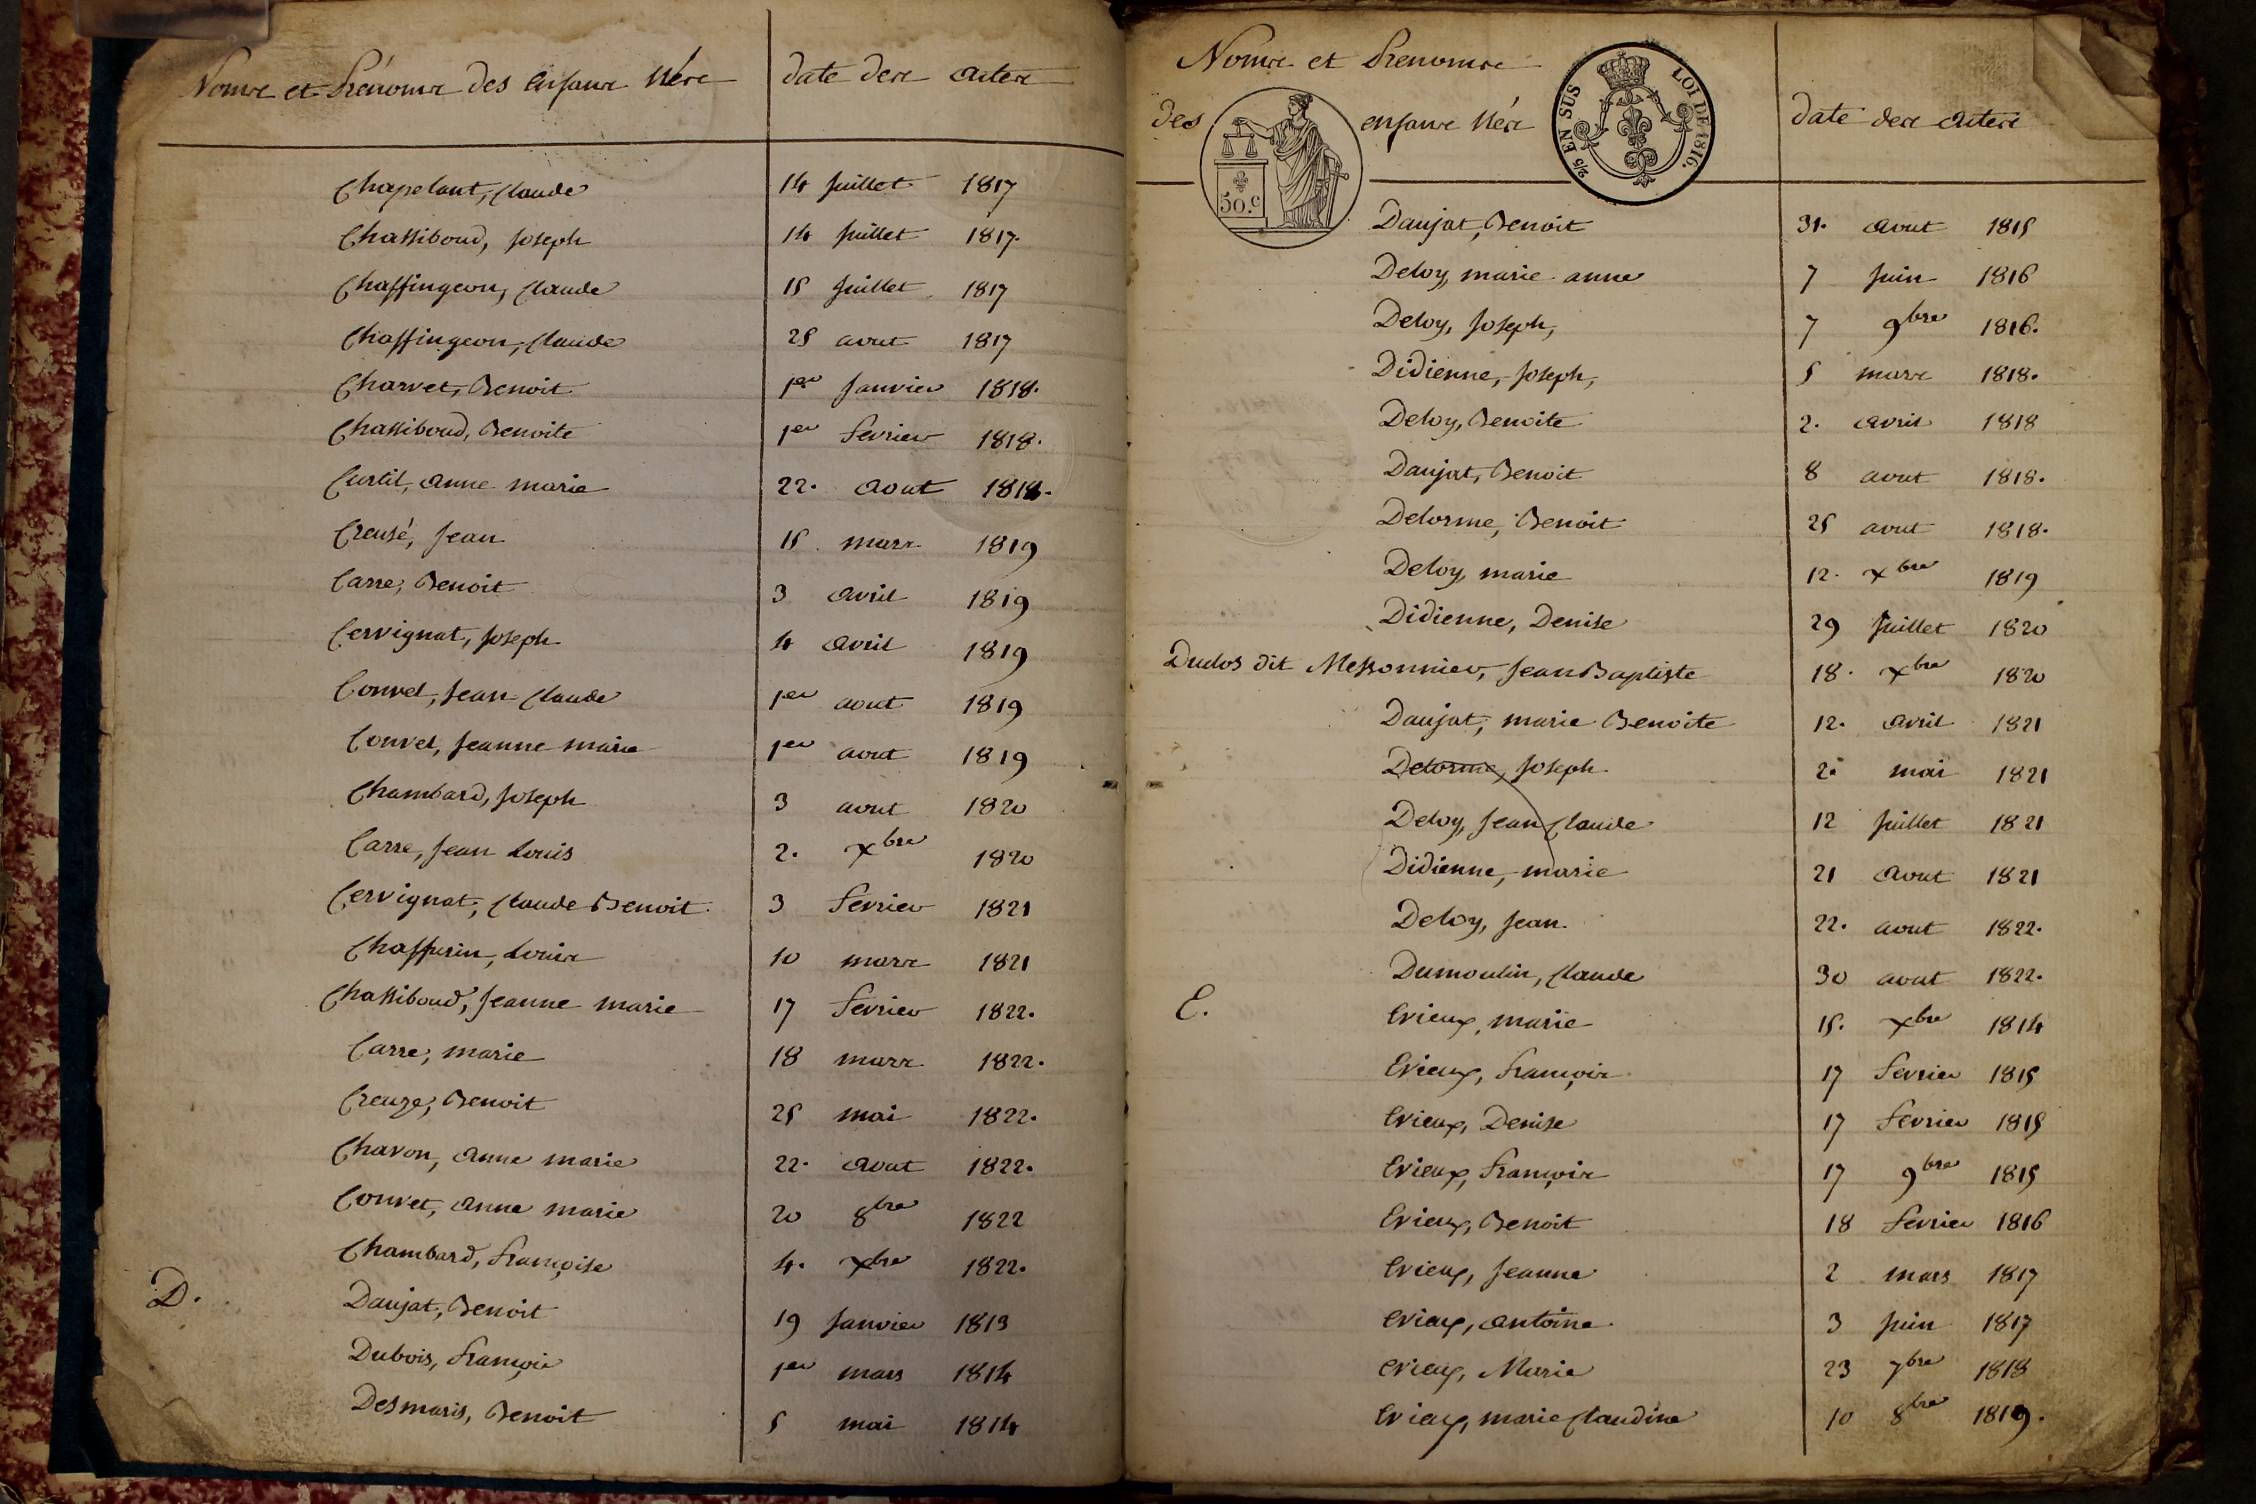 Noms et Prénoms des enfans Nés date des actes
Chapelant, Claude 14 Juillet 1817
Chassiboud, Joseph 14 Juillet 1817.
Chaffingeon, Claude 15 Juillet 1817
Chaffingeon, Claude 25 aout 1817
Charvet, Benoit 1er Janvier 1818.
Chassiboud, Benoite 1er fevrier 1818.
Curtil, anne marie 22. aout 1818.
Creusé, Jean 15 mars 1819
Carre, Benoit 3 avril 1819
Cervignat, Joseph 4 avril 1819
Convet, Jean Claude 1er aout 1819
Convet, Jeanne marie 1er aout 1819
Chambard, Joseph 3 aout 1820
Carre, Jean Louis 2. xbre 1820
Cervignat, Claude Benoit 3 fevrier 1821
Chaffurin, Louis 10 mars 1821
Chassiboud, Jeanne marie 17 fevrier 1822.
Carre, marie 18 mars 1822.
Creuze, Benoit 25 mai 1822.
Chavon, anne marie 22. aout 1822.
Convet, anne marie 20 8bre 1822
Chambard, françoise 4. xbre 1822.
D. Daujat, Benoit 19 Janvier 1813
Dubois, françois 1er mars 1814
Desmaris, Benoit 5 mai 1814
Noms et Prenoms
des enfans Nés date des actes
50.c
2/5 EN SUS LOI DE 1816.
Daujat, Benoit 31. aout 1815
Deloy, marie anne 7 Juin 1816
Deloy, Joseph, 7 9bre 1816.
Didienne, Joseph, 5 mars 1818.
Deloy, Benoite 2. avril 1818
Daujat, Benoit 8 aout 1818.
Delorme, Benoit 25 aout 1818.
Deloy, marie 12. xbre 1819
Didienne, Denise 29 Juillet 1820
Duclos dit Messonnier, Jean Baptiste 18. xbre 1820
Daujat, marie Benoite 12. avril 1821
Delorme, Joseph 2. mai 1821
Deloy, Jean Claude 12 Juillet 1821
Didienne, marie 21 aout 1821
Deloy, Jean. 22. aout 1822.
Dumoulin, Claude 30 aout 1822.
E. Evieux, marie 15. xbre 1814
Evieux, françois 17 fevrier 1815
Evieux, Denise 17 fevrier 1815
Evieux, françois 17 9bre 1815
Evieux, Benoit 18 fevrier 1816
Evieux, Jeanne 2 mars 1817
Evieux, antoine 3 Juin 1817
Evieux, Marie 23 7bre 1818
Evieux, marie Claudine 10 8bre 1819.